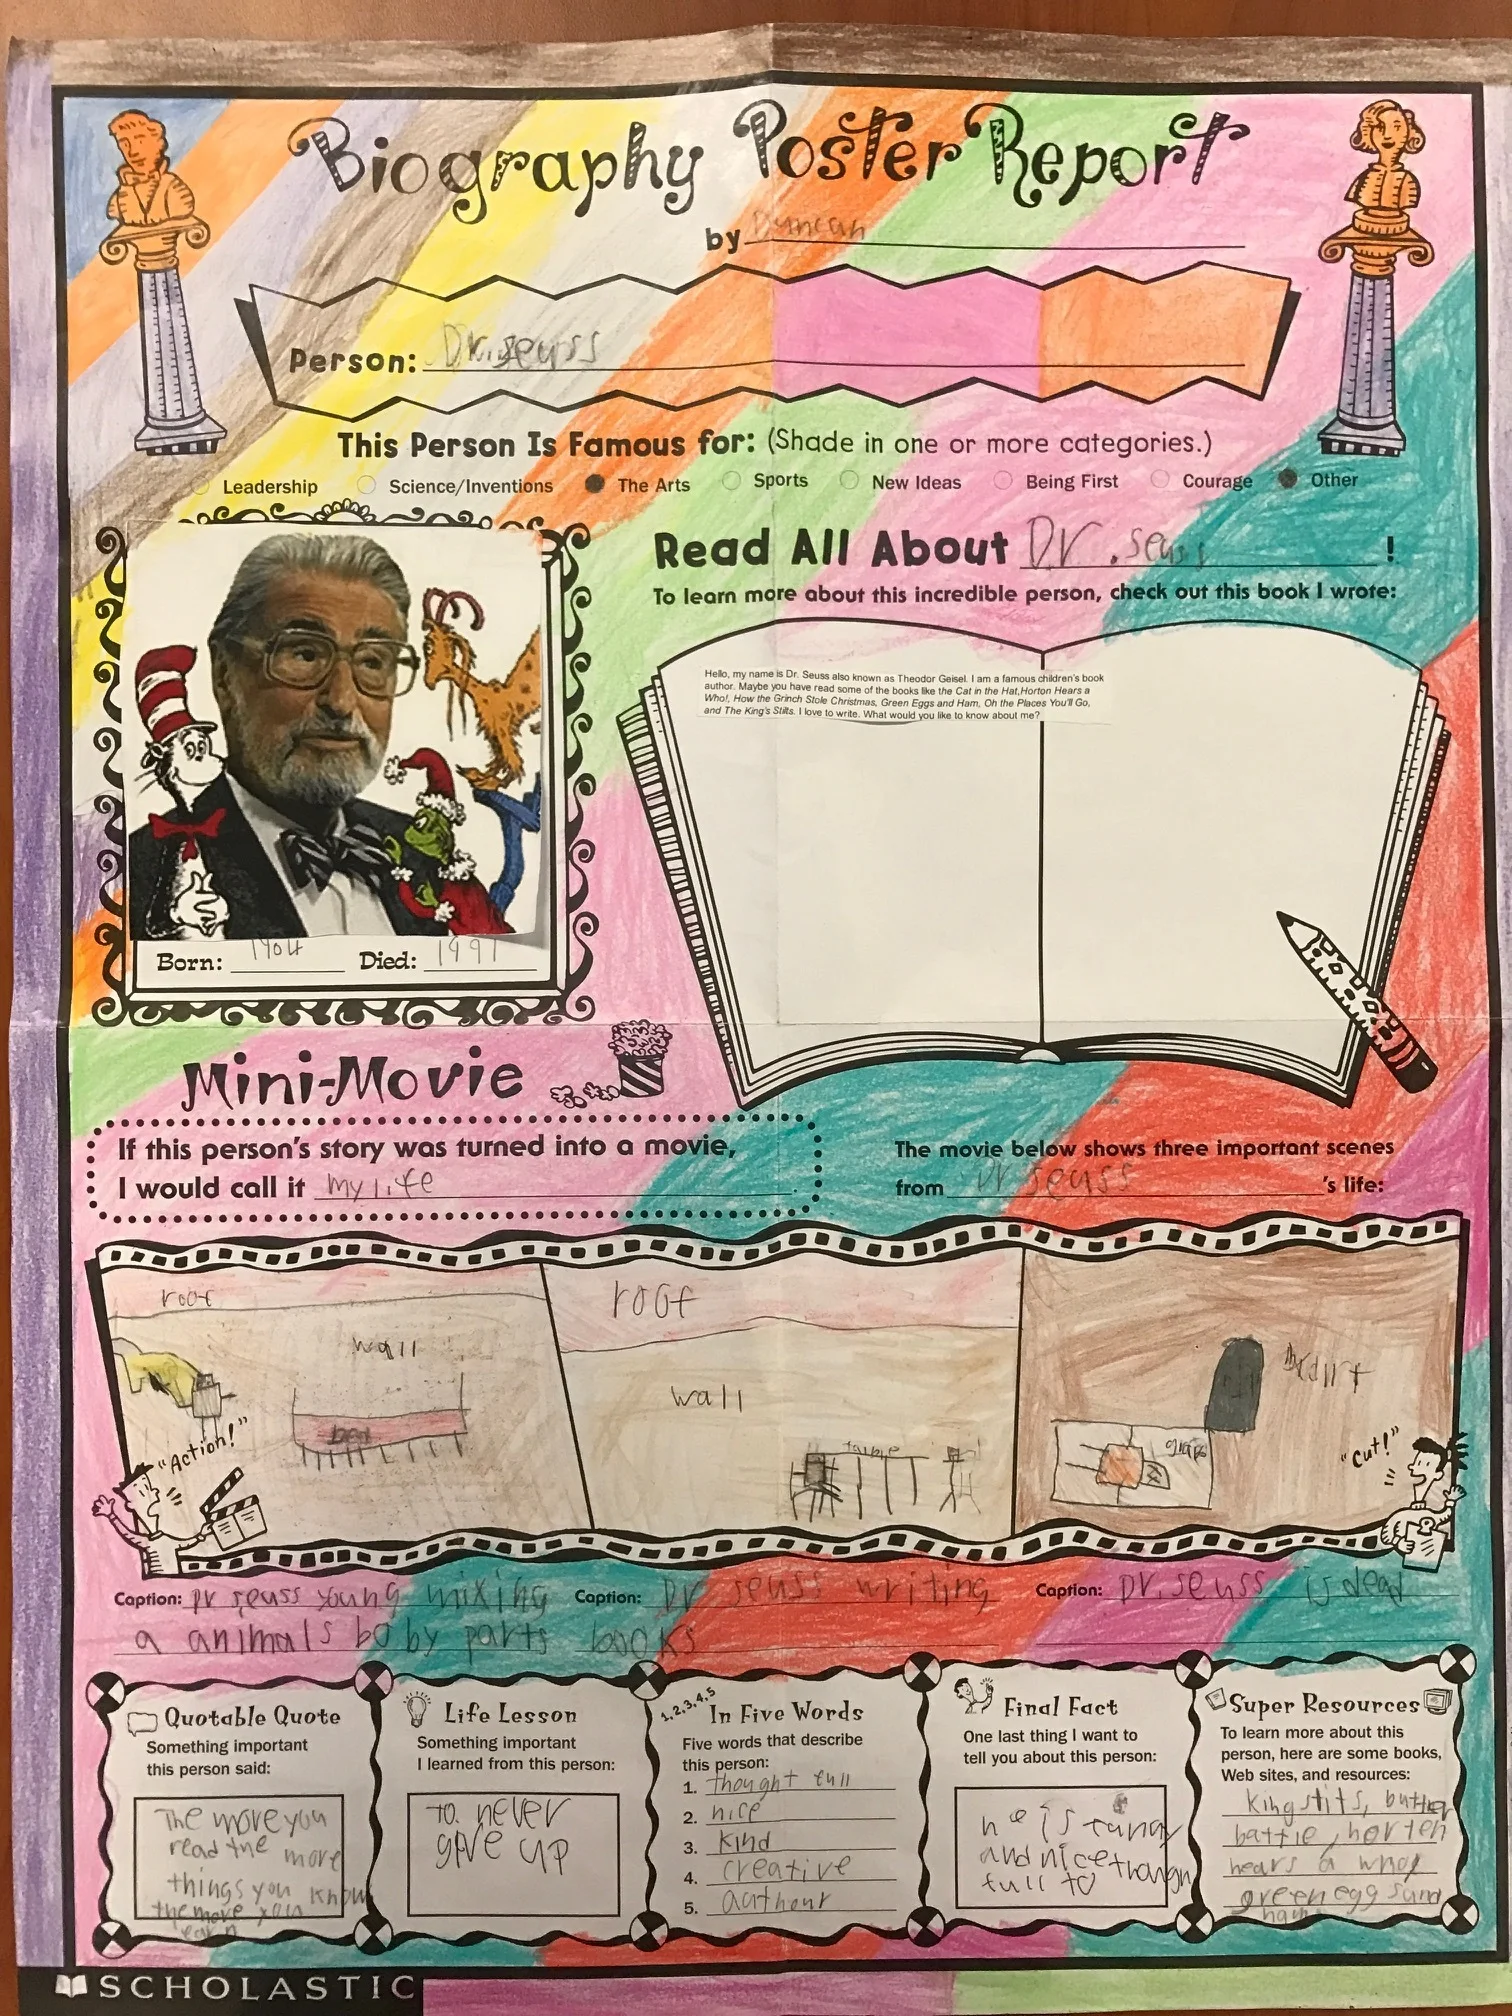 Biography Poster Report
by Duncan
Person: Dr. seuss
This Person Is Famous for: (Shade in one or more categories.)
Leadership Science/Inventions The Arts Sports New Ideas Being First Courage Other
Read All About Dr. seuss !
To learn more about this incredible person, check out this book I wrote:
Hello, my name is Dr. Seuss also known as Theodor Geisel. I am a famous children's book
author. Maybe you have read some of the books like the Cat in the Hat,Horton Hears a
Who!, How the Grinch Stole Christmas, Green Eggs and Ham, Oh the Places You'll Go,
and The King's Stilts. I love to write. What would you like to know about me?
Born: 1904 Died: 1991
Mini-Movie
If this person's story was turned into a movie,
I would call it my life.
The movie below shows three important scenes
from Dr seuss 's life:
roof
wall
bed
"Action!"
roof
wall
table
"Cut!"
Caption: Dr seuss young mixing
a animals boby parts
Caption: Dr seuss writing
books
Caption: Dr. seuss is dead
Quotable Quote
Something important
this person said:
The more you
read the more
things you know
the more you
learn
Life Lesson
Something important
I learned from this person:
to never
give up
1,2,3,4,5
In Five Words
Five words that describe
this person:
1. thought full
2. nice
3. kind
4. creative
5. authour
Final Fact
One last thing I want to
tell you about this person:
he is funny
and nice though
full to
Super Resources
To learn more about this
person, here are some books,
Web sites, and resources:
king stits, butter
battle, horten
hears a who,
green egg sand
ham
SCHOLASTIC